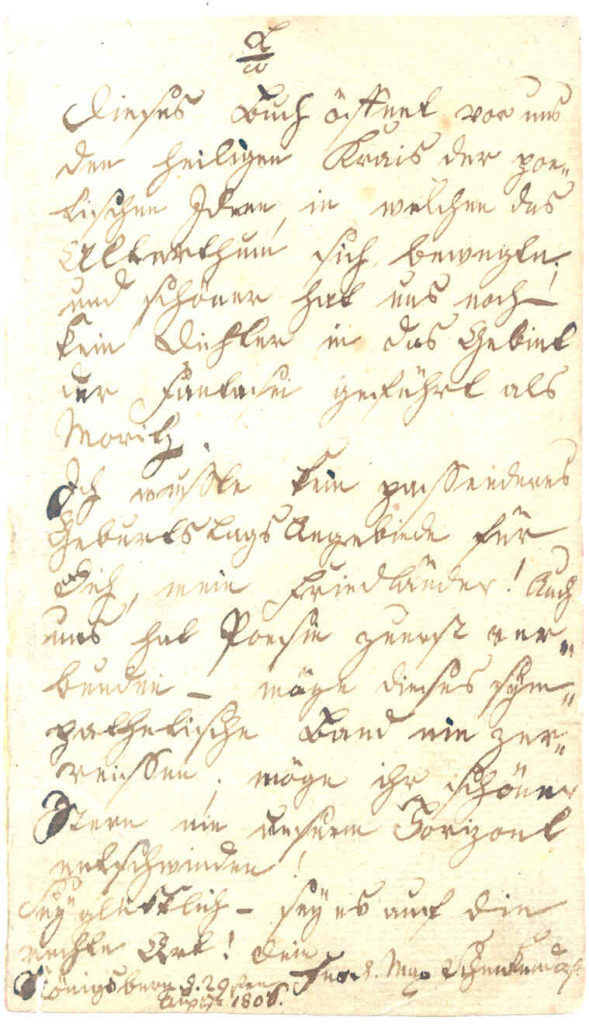 α/ω
Dieses Buch öffnet vor uns
den heiligen Krais der poe-
tischen Ideen, in welchen das
Alterthum sich bewegte,
und schöner hat uns noch
kein Dichter in das Gebiet
der Fantasei geführt als
Moritz.
Ich wusste kein passenderes
Geburtstags Angebinde für
Dich, mein Friedländer! Auch
uns hat Poesie zuerst ver-
bunden – möge dieses sym-
pathetische Band nie zer-
reissen, möge ihr schöner
Stern nie unserm Horizont
entschwinden!
Sey glücklich – sey es auf die
rechte Art! Dein
Ferd. Max Schenkendorf
Königsberg d. 29sten
August 180